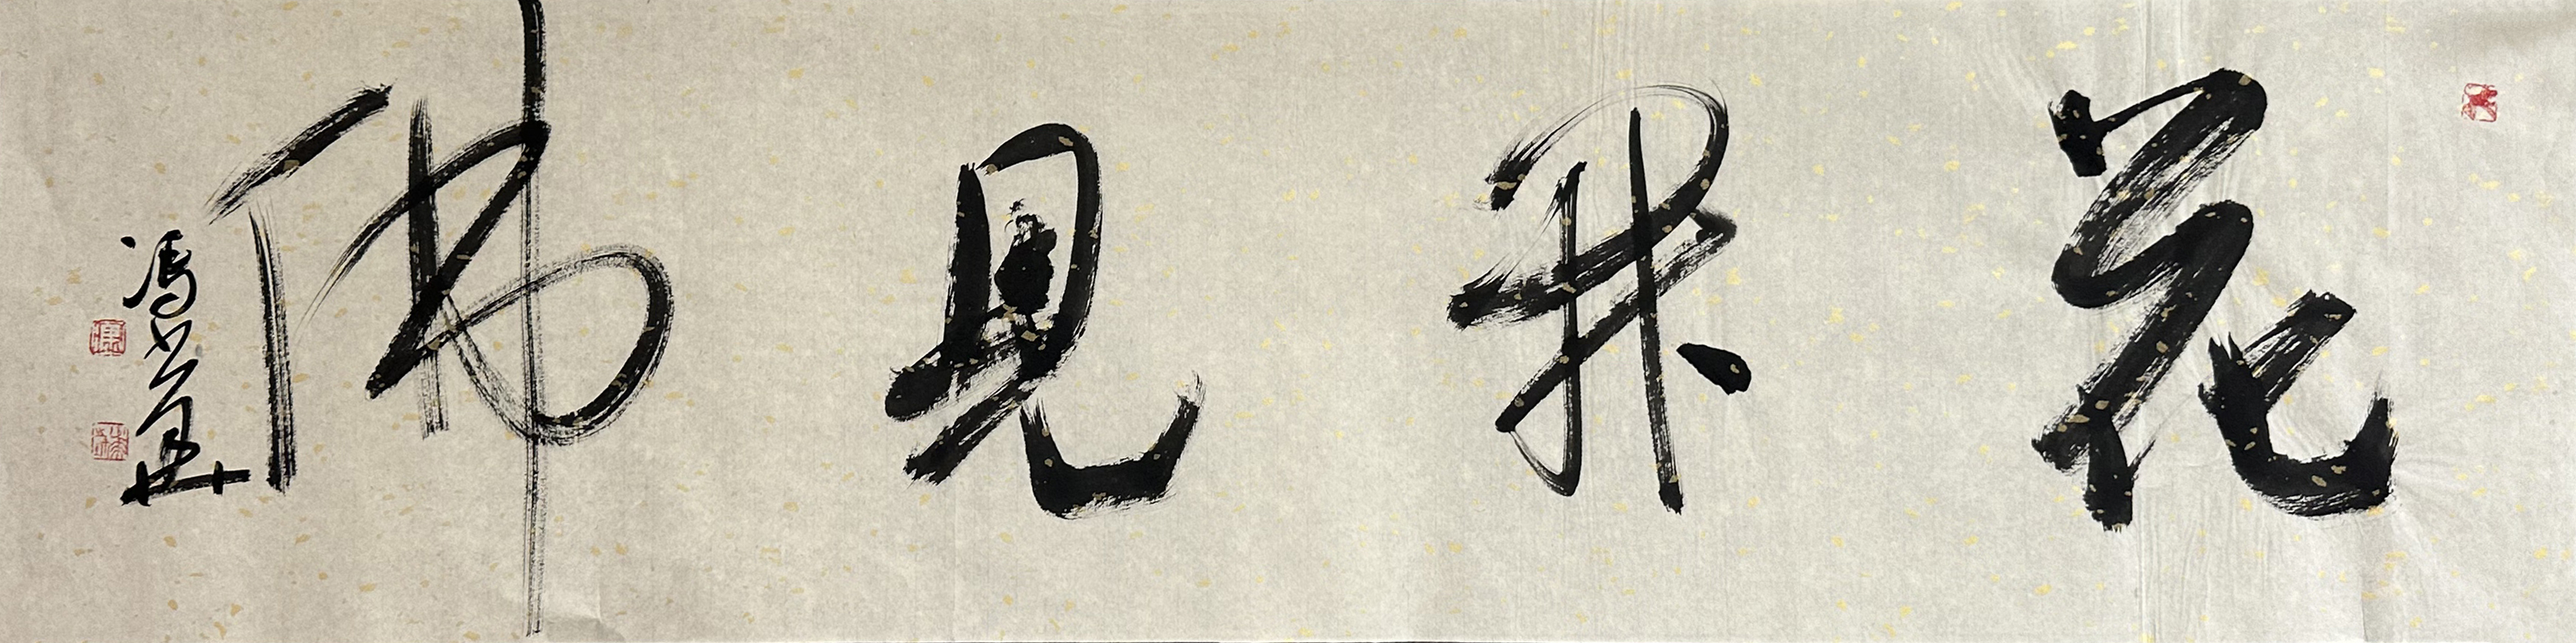 花開見佛
馮